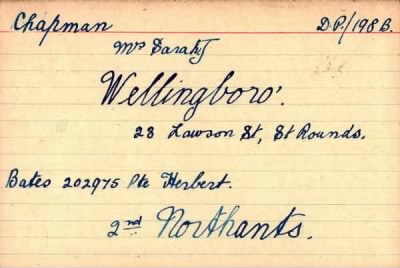 Chapman D.P./198 B.
Mrs Sarah J
Wellingboro'.
23 Lawson St, St Rounds.
Bates 202975 Pte Herbert.
2nd Northants.